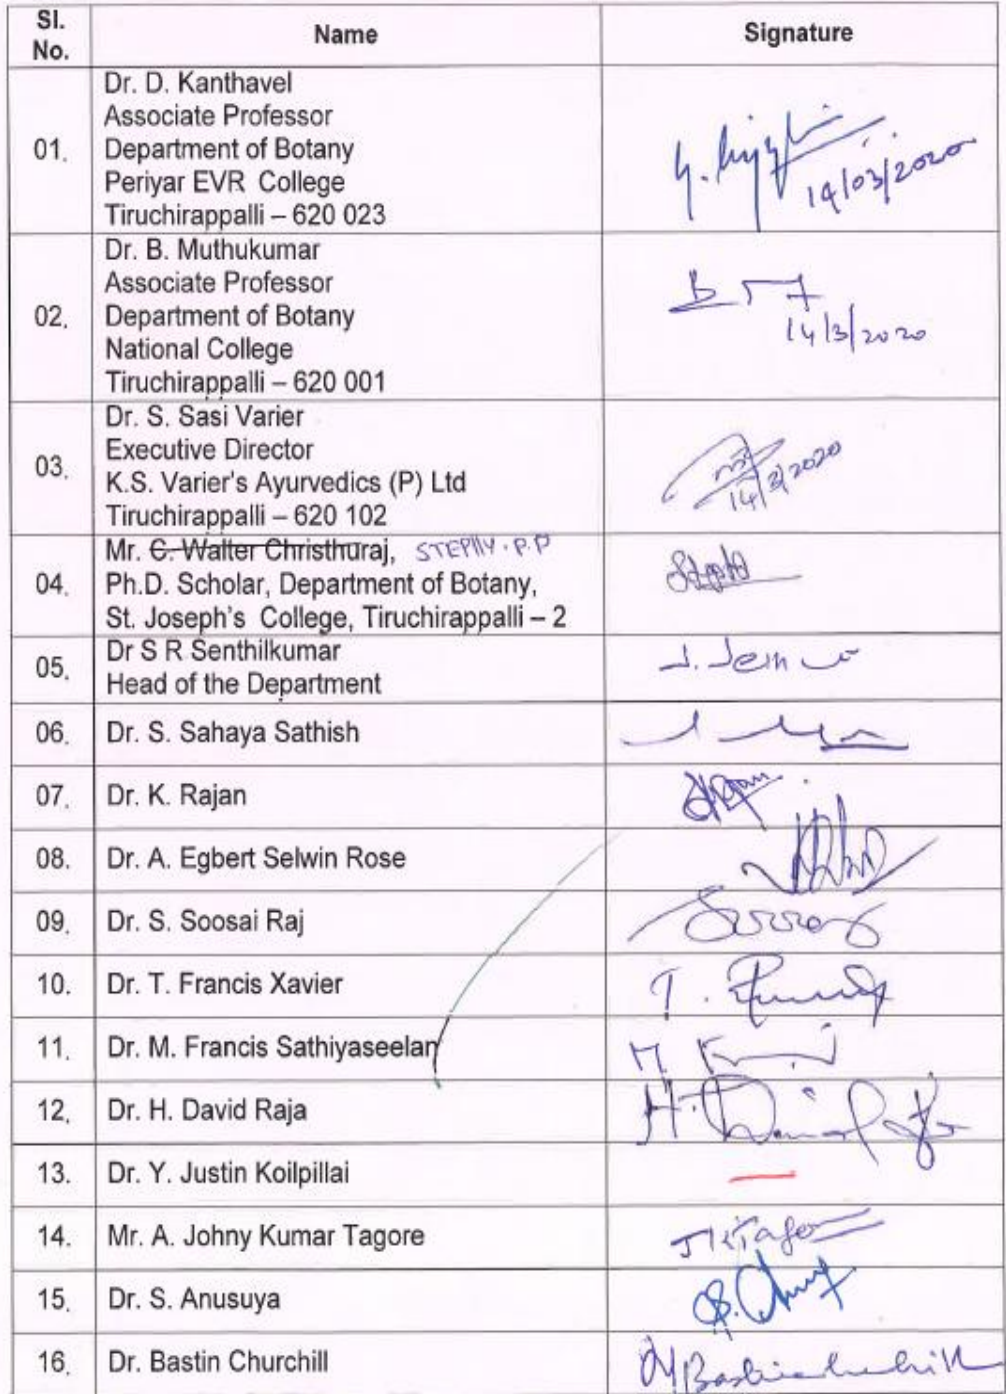 Sl. No. Name Signature
01. Dr. D. Kanthavel
Associate Professor
Department of Botany
Periyar EVR College
Tiruchirappalli – 620 023
14/03/2020
02. Dr. B. Muthukumar
Associate Professor
Department of Botany
National College
Tiruchirappalli – 620 001
14/3/2020
03. Dr. S. Sasi Varier
Executive Director
K.S. Varier's Ayurvedics (P) Ltd
Tiruchirappalli – 620 102
14/3/2020
04. Mr. C. Walter Christhuraj, STEPHY. P. P
Ph.D. Scholar, Department of Botany,
St. Joseph's College, Tiruchirappalli – 2
05. Dr S R Senthilkumar
Head of the Department
06. Dr. S. Sahaya Sathish
07. Dr. K. Rajan
08. Dr. A. Egbert Selwin Rose
09. Dr. S. Soosai Raj
10. Dr. T. Francis Xavier
11. Dr. M. Francis Sathiyaseelan
12. Dr. H. David Raja
13. Dr. Y. Justin Koilpillai
14. Mr. A. Johny Kumar Tagore
15. Dr. S. Anusuya
16. Dr. Bastin Churchill